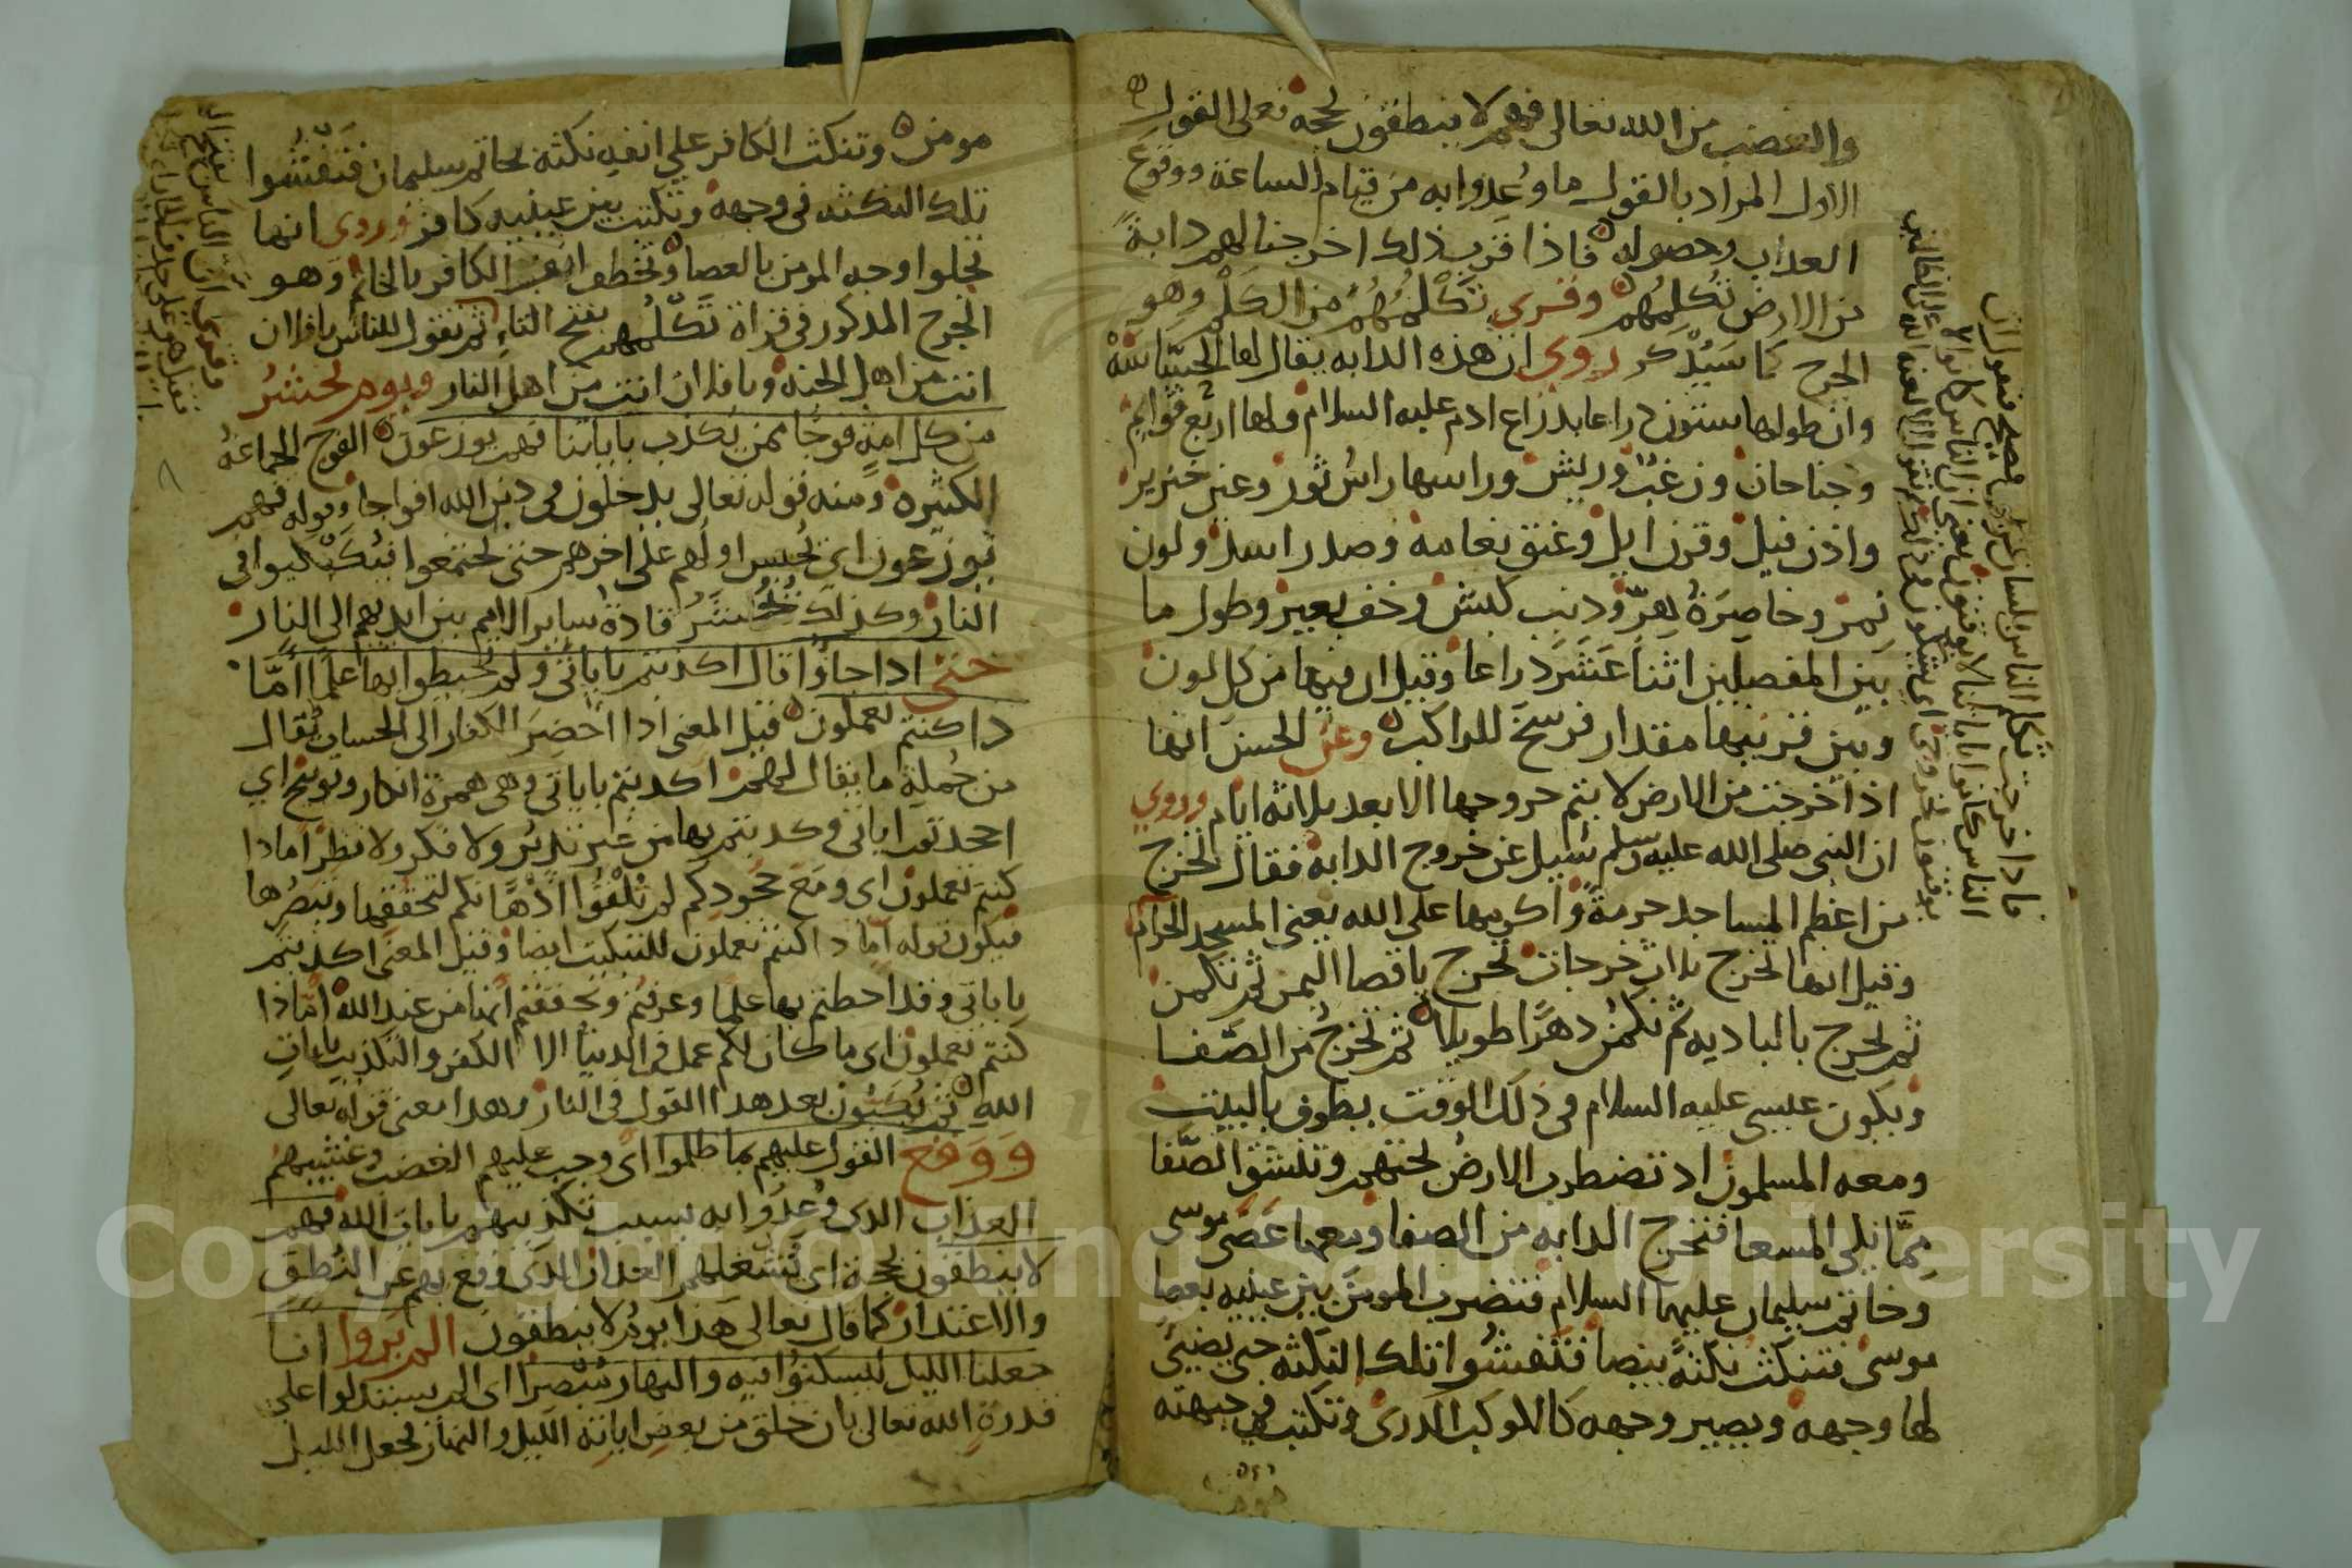 والغضب من الله تعالى فهم لا ينطقون بحجة فعلى القول
الاول المراد بالقول ما وُعدوا به من قيام الساعة ووقوع
العذاب وحصوله فاذا قرب ذلك اخرجنا لهم دابة
من الارض تُكلِّمُهم وقري تَكْلِمُهُمْ من الكَلْمِ وهو
الجرح كما سَيُذْكر روي ان هذه الدابه يقال لها الجسّاسَةُ
وان طولها ستون ذراعا بذراع ادم عليه السلام ولها اربع قوايم
وجناحان وزغب وريش وراسها راسُ ثور وعين خنزير
واذن فيل وقرن ايل وعنق نعامه وصدر اسد ولون
نمر وخاصِرَةُ هِرٍّ وذنب كبش وخف بعير وطول ما
بين المفصلين اثنا عَشَرَ ذراعا وقيل ان فيها من كل لون
وبين قرنيها مقدار فرسخ للراكب وعن الحسن انها
اذا خرجت من الارض لا يتم خروجها الا بعد ثلاثه ايام وروي
ان النبي صلى الله عليه وسلم سُيل عن خروج الدابة فقال تخرج
من اعظم المساجد حرمةً واكرمها على الله يعني المسجد الحرام
وقيل انها تخرج ثلاث خرجات تخرج باقصا اليمن ثم تكمن
ثم تخرج بالباديه ثم تكمُن دهرًا طويلا ثم تخرجُ من الصَّفا
ويكون عيسى عليه السلام في ذلك الوقت يطوف بالبيت
ومعه المسلمون اذ تضطرب الارضُ تحتهم وتنشق الصَّفا
مِمَّا يلي المسعا فتخرج الدابه من الصفا ومعها عَصَى موسى
وخاتم سليمان عليهما السلام فتضرب المومنَ بين عينيه بعصا
موسى فتنكت نكتةً بيضا فتفشُوا تلك النكته حتى يضيئ
لها وجهه ويصير وجهه كالكوكب الدرى وتكتب في جبهته
ماذا خرجت تكلم الناس بلسان عربي فصيح فتقول ان
الناس كانوا باياتنا لا يوقنون يعنى ان الناس كانوا لا
يوقنون بخروجى
مومن وتنكت الكافر على انفه نكته بخاتم سليمان فَتَفْشُوا
تلك النكته في وجهه وتكتب بين عينيه كافر وروى انها
تجلوا وجه المومن بالعصا وتخطم انف الكافر بالخاتم وهو
الجرح المذكور في قراة تَكْلِمُهم بفتح التاءِ ثم تقول للناس يا فلان
انت من اهل الجنه ويا فلان انت من اهل النار ويوم نحشُرُ
من كل امةٍ فوجا ممن يكذب باياتنا فهم يوزعون الفوج الجماعةُ
الكثيرة ومنه قوله تعالى يدخلون في دين الله افواجا وقوله فهم
يوزعون اي يُحبس اولهم على اخرهم حتى يجتمعوا فيُكَبْكبوا في
النار وكذلك تُحْشَرُ قادةُ ساير الامم بين ايديهم الى النار
حتى اذا جاؤا قال اكذبتم باياتى ولم تحيطوا بها علمًا أمَّا
ذا كنتم تعملون قيل المعنى اذا احضِرَ الكفار الى الحساب يُقال
من جُملةِ ما يقال لهم اكذبتم باياتى وهى همزة انكار وتوبيخ اي
اجحدتم اياتى وكذبتم بها من غير تدبُّر ولا فكر ولا نظر أماذا
كنتم تعملون اى ومع جحودكم لم تُلقُوا اذهانكم لتحققها وتبصُّرها
فيكون قوله أماذا كنتم تعملون للتبكيت ايضا وقيل المعنى اكذبتم
باياتى وقد احطتم بها علما وعرفتم وتحققتم انها من عند الله امَّاذا
كنتم تعملون اى ما كان لكم عمل في الدنيا الا الكفر والتكذيب بايات
الله ثم يُكبُّون بعد هذا القول في النار وهذا معنى قوله تعالى
وَوَقع القول عليهم بما ظلموا اى وجب عليهم الغضب وغشيهم
العذاب الذى وُعِدُوا به بسبب تكذيبهم بايات الله فهم
لا ينطقون بحجة اى يُشغلهم العذاب الذى وقع بهم عن النُّطق
والاعتذار كما قال تعالى هذا يومُ لا ينطقون الم يروا انا
جعلنا الليل ليسكنوا فيه والنهار مُبْصِرًا اى الم يستدلوا على
قدرةِ الله تعالى بان خلق من بعض اياته الليل والنهار فجعل الليل
Copyright © King Saud University